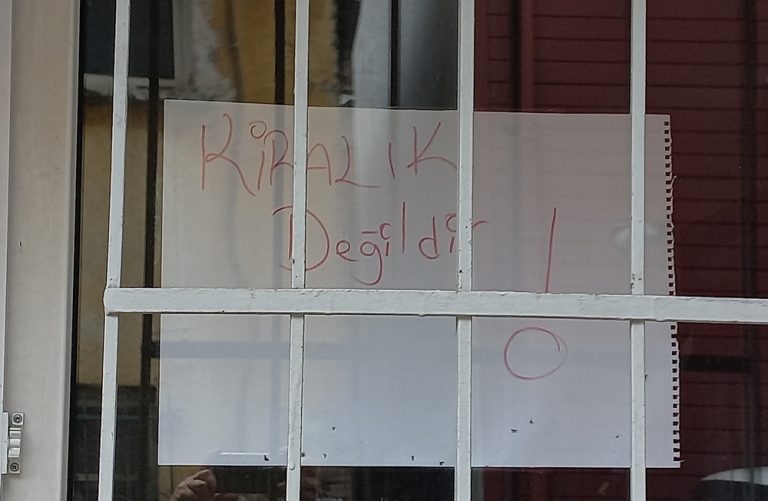 KİRALIK
Değildir !